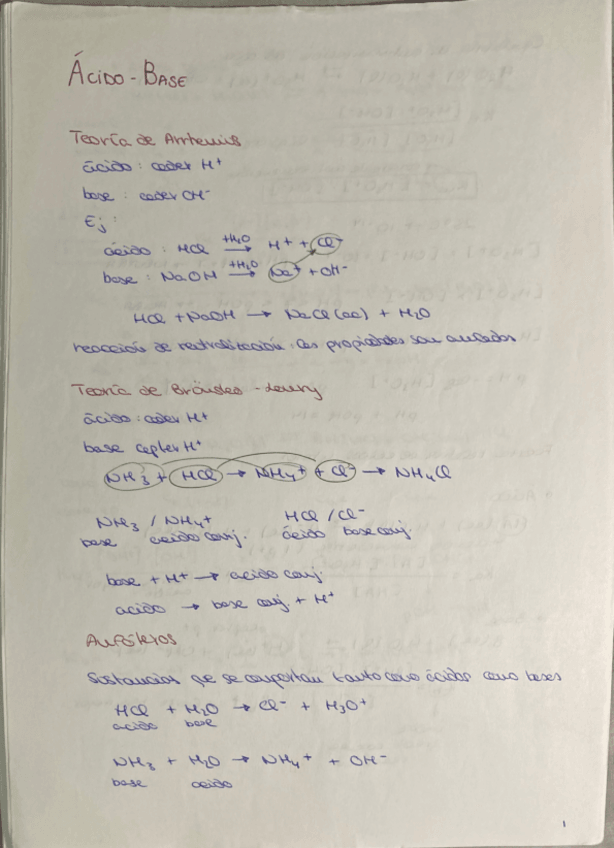 Ácido - Base
Teoría de Arrhenius
ácido : ceder H⁺
base : ceder OH⁻
Ej :
ácido : HCl +H₂O → H⁺ + Cl⁻
base : NaOH +H₂O → Na⁺ + OH⁻
HCl + NaOH → NaCl (ac) + H₂O
reacción de neutralización : las propiedades son anuladas
Teoría de Brönsted - Lowry
ácido : ceder H⁺
base cepter H⁺
NH₃ + HCl → NH₄⁺ + Cl⁻ → NH₄Cl
NH₃ / NH₄⁺ HCl / Cl⁻
base ácido conj. ácido base conj.
base + H⁺ → ácido conj.
ácido → base conj. + H⁺
Anfóteros
Sustancias qe se comportan tanto como ácidos como bases
HCl + H₂O → Cl⁻ + H₃O⁺
ácido base
NH₃ + H₂O → NH₄⁺ + OH⁻
base ácido
1